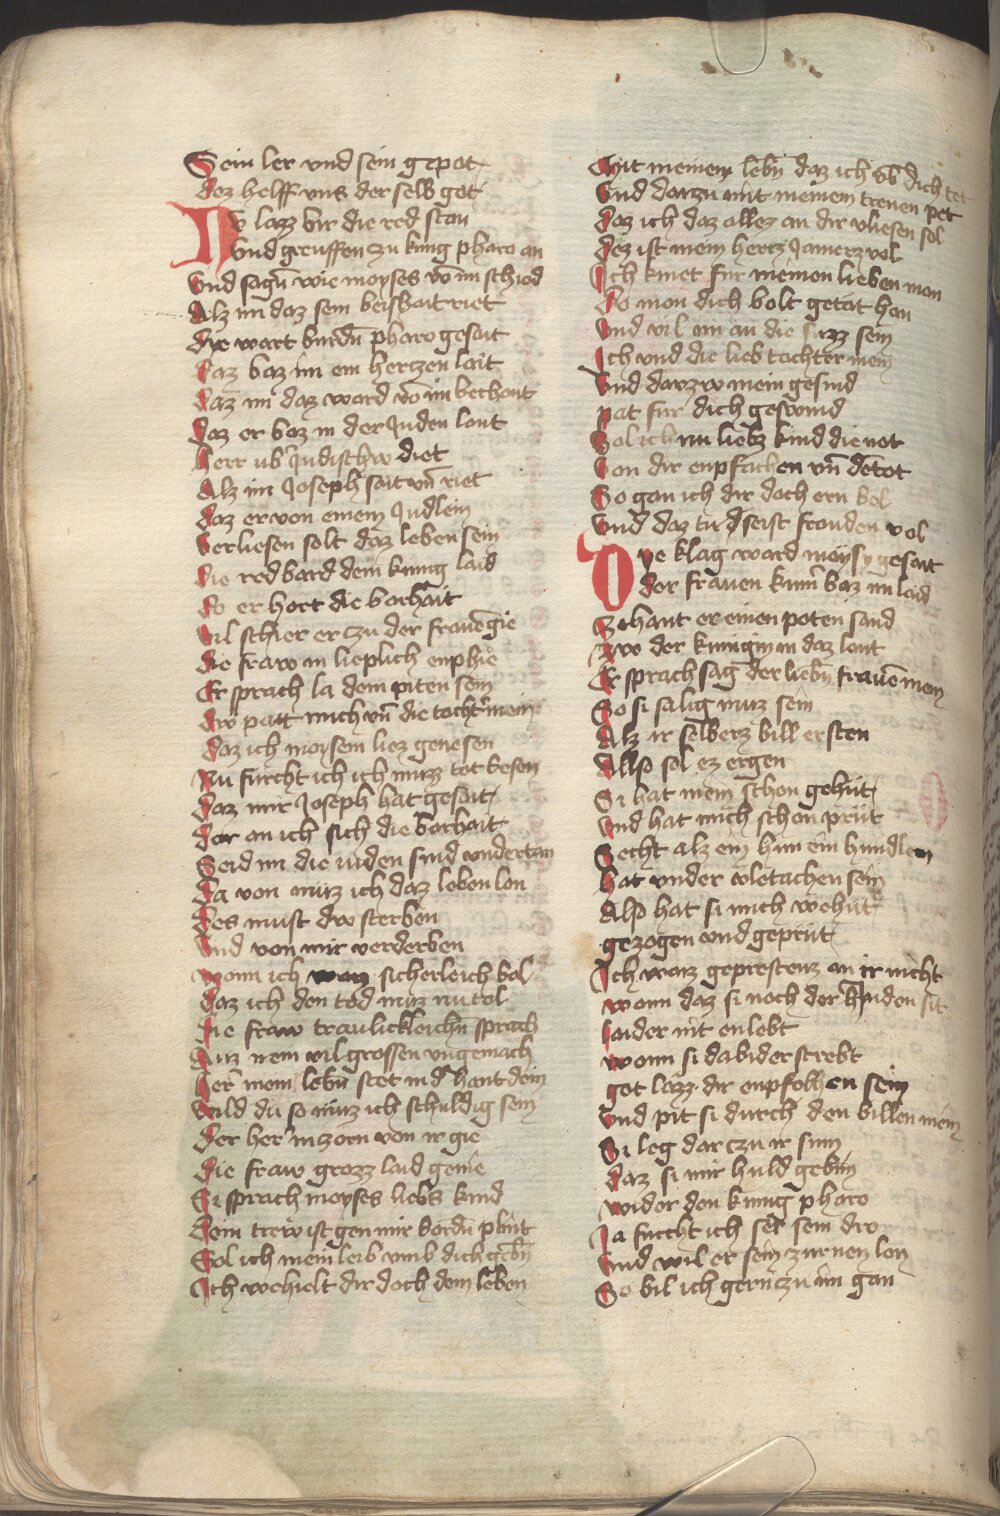 Sein ler vnd sein gepot
dez helff vns der selb got
Nv lazz bir die red stan
Vnd greuffen zu kunig pharo an
Vnd sagn̄ wie moyses vo im schied
Alz im daz sein beishait riet
dye wart burdn̄ pharo gesait
daz baz im ein hertzen lait
daz im daz ward vo im bechant
daz er baz in der Juden lant
herr ub̾ Judischew diet
Alz im Joseph sait vn̄ riet
daz er von einem Judlein
verliesen solt daz leben sein
die red bard dem kunig laid
do er hort die barhait
vil schier er czu der frauen gie
die fraw in lieplich enphie
Er sprach la dein piten sein
dw patt mich vn̄ die tocht̾ mein
daz ich moysem liez genesen
Nu furcht ich ich muzz tot besen
daz mir Joseph hat gesait
dar an ich sich die barhait
Seid im die iuden sind vndertan
Da von muz ich daz leben lon
des must dw sterben
Vnd von mir verderben
wann ich waz sicherleich bol
daz ich den tod muz nu tol
die fraw traulickleichn̄ sprach
Auz irem vil grossen vngemach
her̾ mein lebn̄ stet in d̾ hant dein
wild du so muz ich schuldig sein
der her̾ in zorn von ir gie
die fraw grozz laid genie
Si sprach moyses liebs kind
dein trew ist gen mir bordn̄ plint
Sol ich mein leib vmb dich gebn̄
Ich wehielt dir doch dein leben
Mit meinem lebn̄ daz ich ob dich tet
Vnd darzu mit meinem treuen pet
daz ich daz allez an dir vliesen sol
dez ist mein hertz Jamerz vol
Ich kniet fur meinen lieben man
do man dich bolt getot han
Vnd vil im an die fuzz sein
Ich vnd die lieb tochter mein
Vnd darzw mein gesind
pat fur dich geswind
Sol ich nu liebz kind die not
von dir enpfachen vn̄ den tot
So gan ich dir doch ern bol
Vnd daz tu d seist frouden vol
Dye klag ward moysy gesait
der frauen kum̄ baz im laid
Zehant er einen poten sand
Zw der kunigin in daz lant
Er sprach sag der liebn̄ frauen̄ mein
So si salig muz sein
Alz ir selberz bill ersten
Allso sol ez ergen
Si hat mein schon gehut
Vnd hat mich schon prut
Secht alz ein hun ein hundlein
hat vnder vletachen sein
Also hat si mich wehut
gezogen vnd geprut
Ich waz geprestenz an ir nicht
wann daz si noch der haiden sit
laider mit en lebt
wann si da bider strebt
got lazz dir enpfolhen sein
Vnd pit si durch den billen mein
Si leg dar czu ir sinn
daz si mir huld gebinn
wider den kunig pharo
Ja furcht ich ser sein dro
Vnd wil er sein zurnen lon
So bil ich gern̄ czu im gan